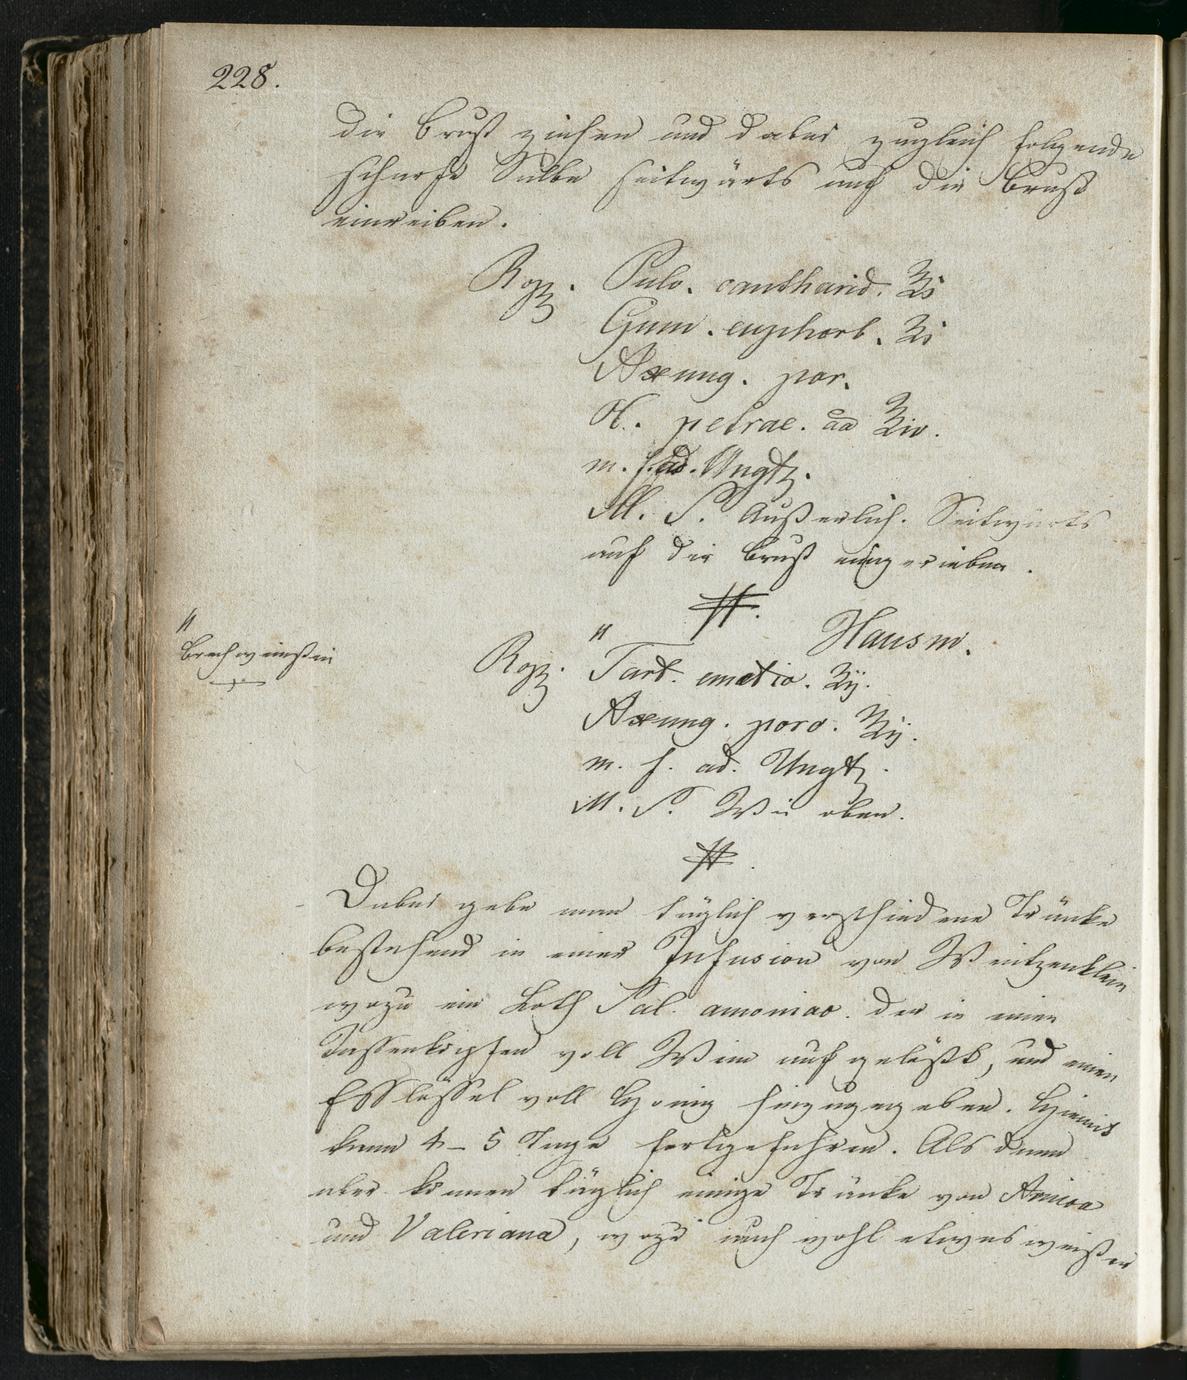 228.
die Brust ziehen und dabei zugleich folgende
scharfe Salbe seitwärts auf die Brust
einreiben.
Rcpt. Pulv. cantharid. ʒiſ
Gum. euphorb. ʒi
Axung. por.
Ol. petrae. aa ʒiv.
m. f. ad. Ungt.
M. S. Äußerlich. Seitwärts
auf der Brust eingerieben.
#.
Hausm.
" Brechweinstein
Rcpt. " Tart. emetic. ʒij.
Axung. porc. ℥ij.
m. f. ad. Ungt.
M. S. Wie oben.
#.
Dabei gebe man täglich verschiedene Tränke
bestehend in einer Infusion von Weitzenklein
wozu ein Loth Sal. amoniac. der in einen
Tassenköpfen voll Wein aufgelößt, und einen
Esslössel voll Honig hinzugegeben. Hiemit
kann 4–5 Tage fortgefahren. Als dann
aber können täglich einige Tränke von Arnica
und Valeriana, wozu auch wohl etwas weißen